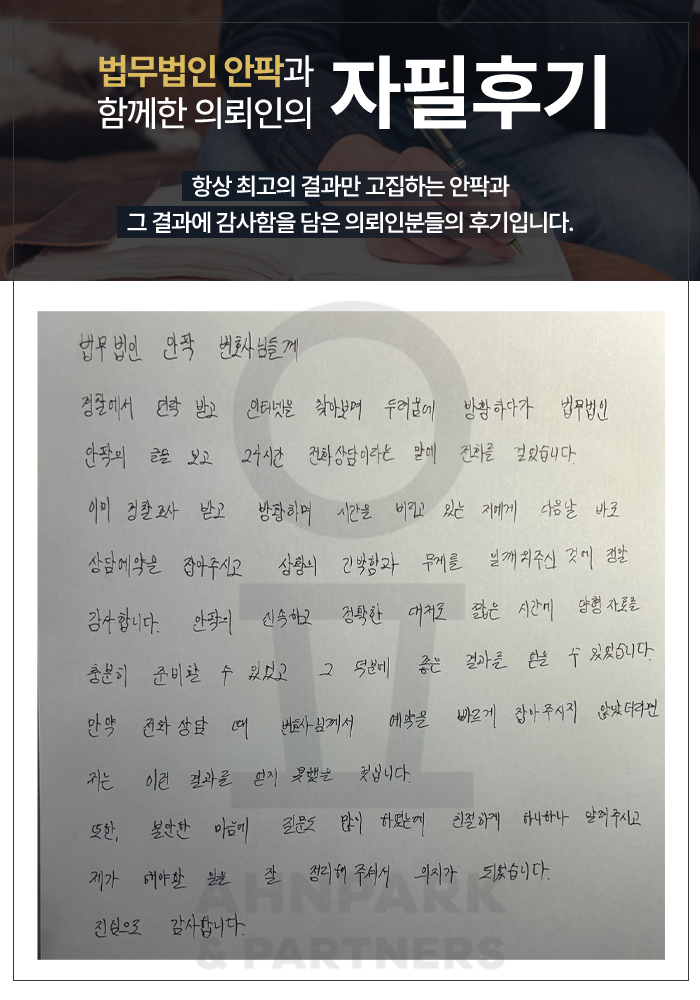 법무법인 안팍과
함께한 의뢰인의
자필후기
항상 최고의 결과만 고집하는 안팍과
그 결과에 감사함을 담은 의뢰인분들의 후기입니다.
법무법인 안팍 변호사님들께
경찰에서 연락 받고 인터넷을 찾아보며 두려움에 방황하다가 법무법인
안팍의 글을 보고 24시간 전화상담이라는 말에 전화를 걸었습니다.
이미 경찰조사 받고 방황하며 시간을 버리고 있는 저에게 다음날 바로
상담예약을 잡아주시고 상황의 긴박함과 무게를 일깨워주신 것에 정말
감사합니다. 안팍의 신속하고 정확한 대처로 짧은 시간에 양형자료를
충분히 준비할 수 있었고 그 덕분에 좋은 결과를 얻을 수 있었습니다.
만약 전화 상담 때 변호사님께서 예약을 빠르게 잡아주시지 않았더라면
저는 이런 결과를 얻지 못했을 것입니다.
또한, 불안한 마음에 질문도 많이 하였는데 친절하게 하나하나 알려주시고
제가 해야할 일을 잘 정리해 주셔서 의지가 되었습니다.
진심으로 감사합니다.
AHNPARK
& PARTNERS